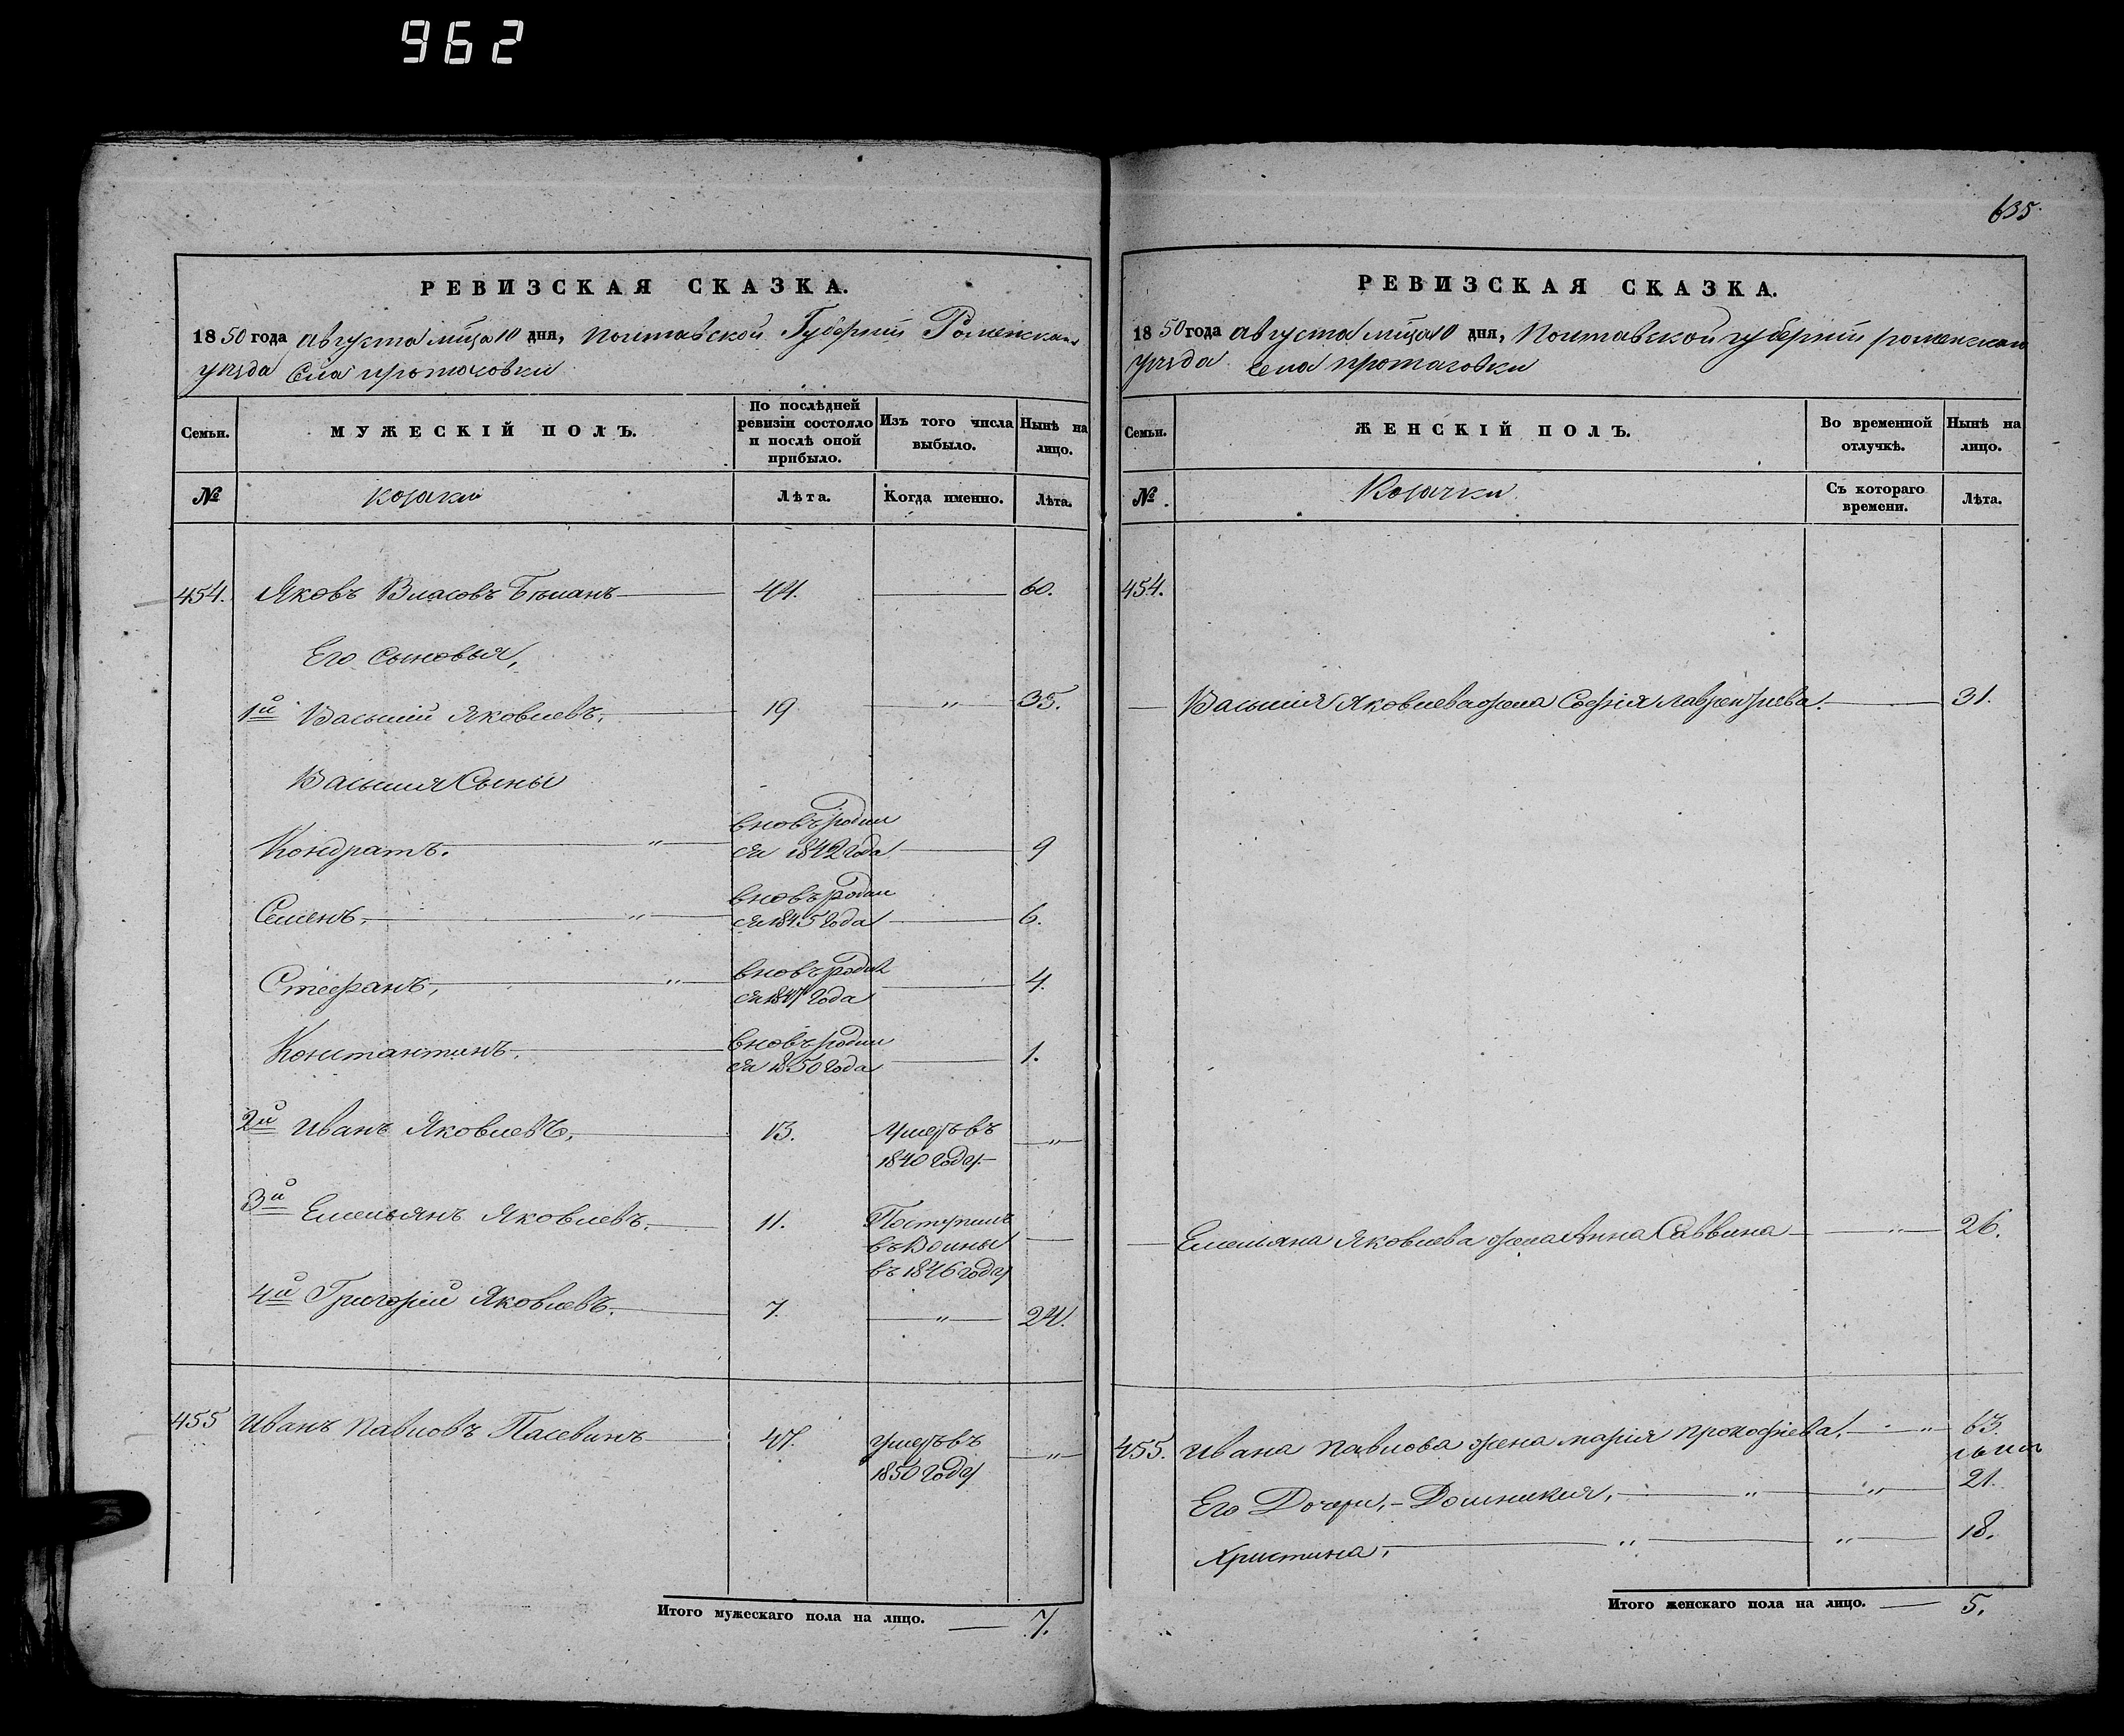 962
РЕВИЗСКАЯ СКАЗКА.
1850 года августа мца 10 дня, Полтавской Губерніи Роменскаго
уѣзда Села протасовки
Семьи.
МУЖЕСКІЙ ПОЛЪ.
По послѣдней ревизіи состояло и послѣ оной прибыло.
Изъ того числа выбыло.
Нынѣ на лицо.
№
козаки
Лѣта.
Когда именно.
Лѣта.
454. Яковъ Власовъ 44. 60.
Его Сыновья,
1й Василій Яковлевъ. 19 " 35.
Василія Сыны
Кондратъ. " вновъ родил
ся 1842 года 9
Семенъ, " вновъ родил
ся 1845 года 6.
Стефанъ, " вновъ родил
ся 1847 года 4.
Константинъ, вновъ родил
ся 1850 года 1.
2й Иванъ Яковлевъ, 13. Умеръ въ "
1840 году
3й Емельянъ Яковлевъ. 11. Поступилъ
въ Воины
въ 1846 году
4й Григорій Яковлевъ. 7. " 24.
455 Иванъ Павловъ Пасевинъ 47. Умеръ въ "
1850 году
Итого мужескаго пола на лицо. 7.
635.
РЕВИЗСКАЯ СКАЗКА.
1850 года августа мца 10 дня, Полтавской губерніи роменскаго
уѣзда села протасовки
Семьи.
ЖЕНСКІЙ ПОЛЪ.
Во временной отлучкѣ.
Нынѣ на лицо.
№.
Козачки
Съ котораго времени.
Лѣта.
454.
Василія Яковлева жена Софія Лаврентіева. 31.
Емельяна Яковлева жена Анна Саввина " 26.
455. Ивана Павлова жена марія прокофіева. " 63.
Его Дочери, - Домникия, " " 21.
Христина, " " 18.
Итого женскаго пола на лицо. 5.